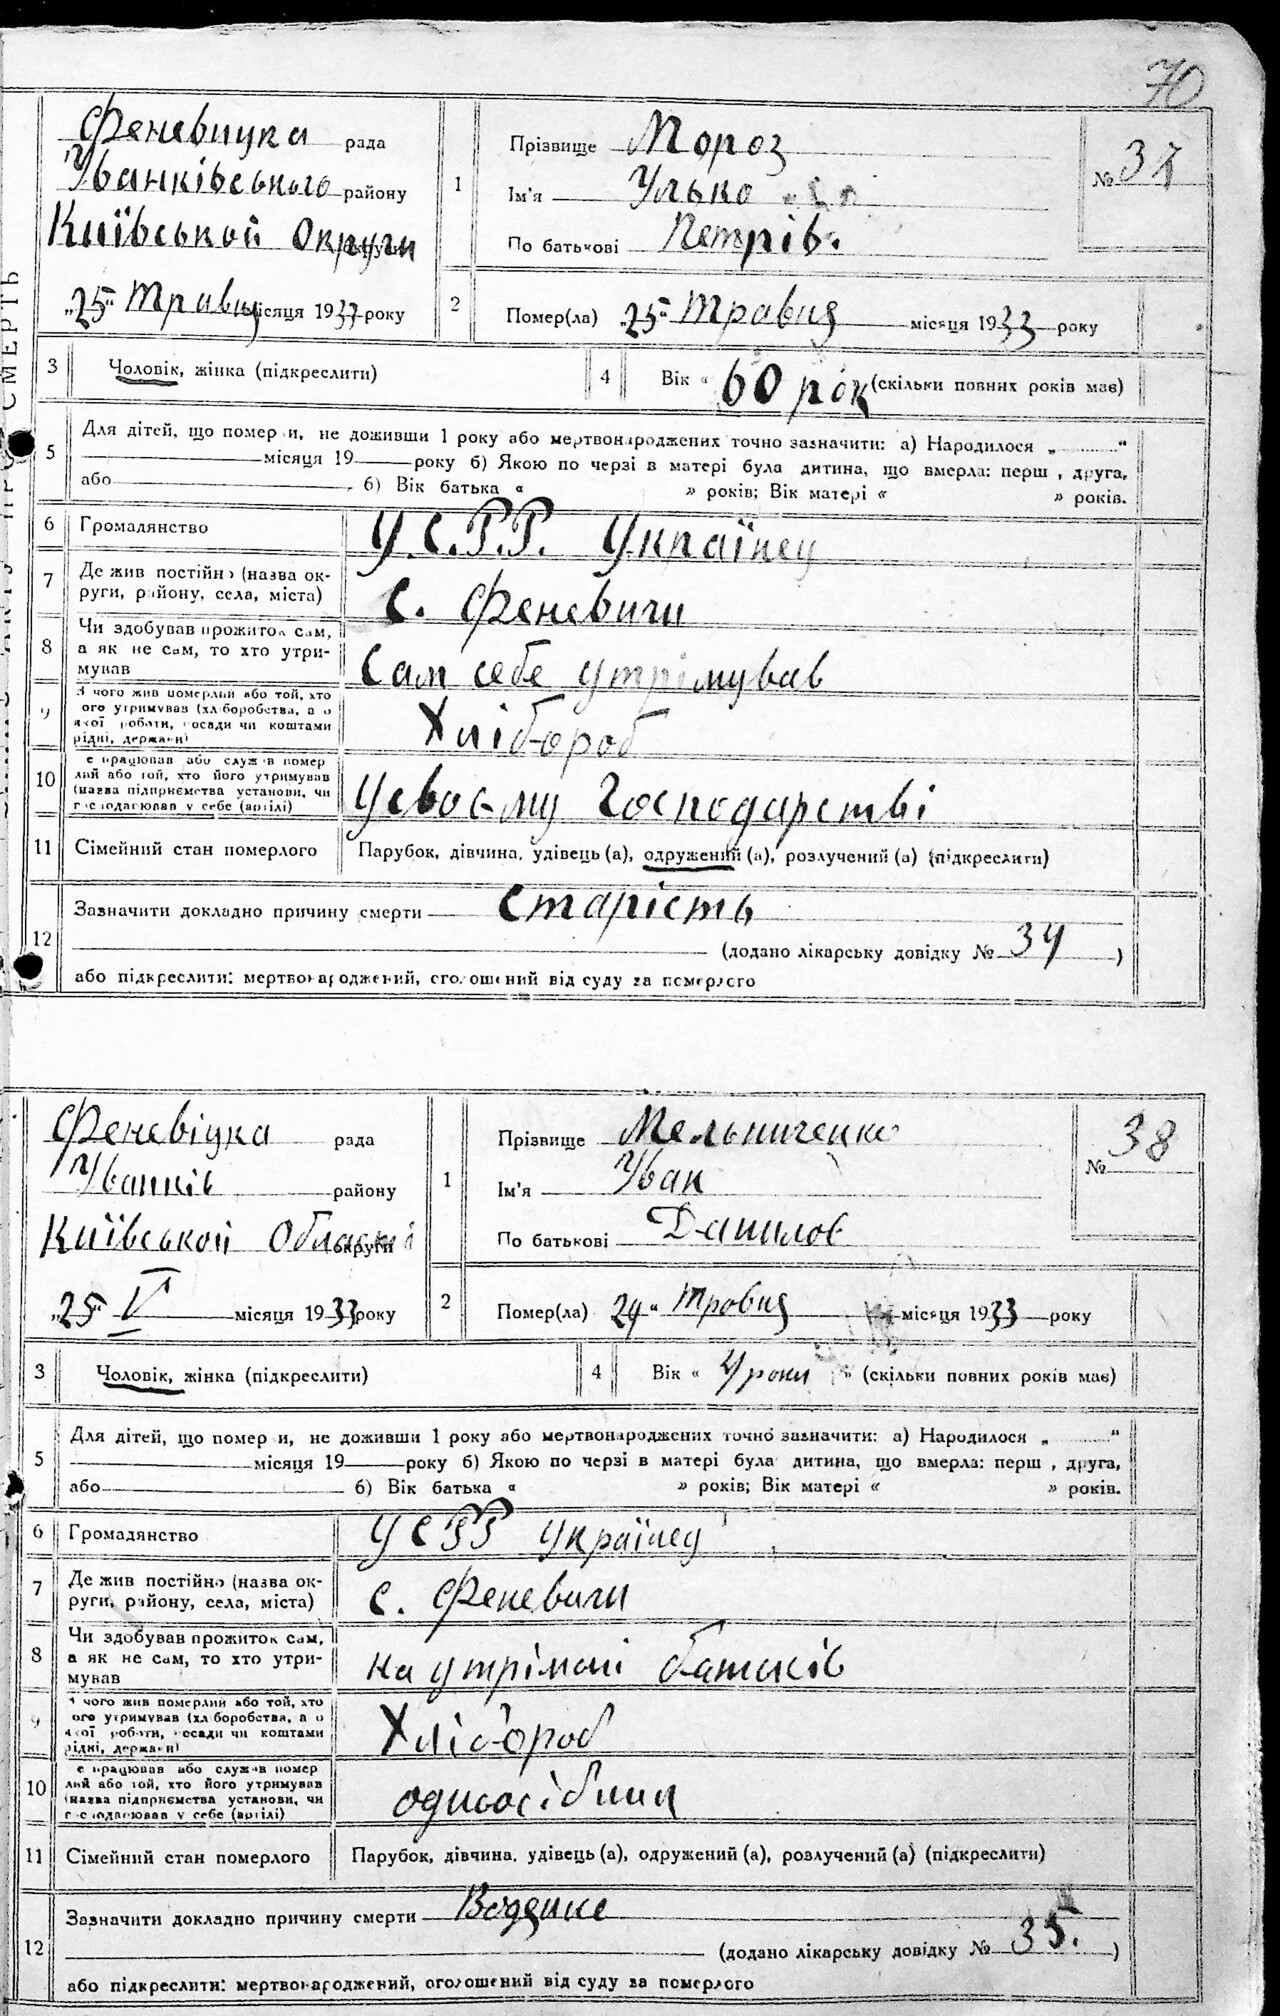 70
Феневицка рада
Іванківського району
Київської Округи
„25" Травня місяця 1933 року
1
Прізвище Мороз
Ім'я Улько
По батькові Петрів.
№ 37
2
Помер(ла) „25" Травня місяця 1933 року
3 Чоловік, жінка (підкреслити)
4 Вік « 60 рок (скільки повних років має)
5
Для дітей, що померли, не доживши 1 року або мертвонароджених точно зазначити: а) Народилося „ "
місяця 19 року б) Якою по черзі в матері була дитина, що вмерла: перш , друга,
або б) Вік батька « » років; Вік матері « » років.
6 Громадянство У.С.Р.Р. Українец
7 Де жив постійно (назва ок-
руги, району, села, міста) с. Феневичи
8 Чи здобував прожиток сам,
а як не сам, то хто утри-
мував Сам себе утрімував
9 З чого жив померлий або той, хто
ого утримував (хліборобства, а о
якої роботи, посади чи коштами
рідні, держави) Хлібороб
10 е працював або служив помер
лий або той, хто його утримував
(назва підприємства установи, чи
господарював у себе (артілі) Усвоєму Господарстві
11 Сімейний стан померлого Парубок, дівчина, удівець (а), одружений (а), розлучений (а) (підкреслити)
12 Зазначити докладно причину смерти Старість
(додано лікарську довідку № 34 )
або підкреслити: мертвонароджений, оголошений від суду за померлого
Феневіцка рада
Іванків району
Київськой Області округи
„25" V місяця 1933 року
1
Прізвище Мельниченко
Ім'я Іван
По батькові Данилов
№ 38
2
Помер(ла) 24 " травня місяця 1933 року
3 Чоловік, жінка (підкреслити)
4 Вік « 4 роки » (скільки повних років має)
5
Для дітей, що померли, не доживши 1 року або мертвонароджених точно зазначити: а) Народилося „ "
місяця 19 року б) Якою по черзі в матері була дитина, що вмерла: перш , друга,
або б) Вік батька « » років; Вік матері « » років.
6 Громадянство УСРР Українец
7 Де жив постійно (назва ок-
руги, району, села, міста) с. Феневичи
8 Чи здобував прожиток сам,
а як не сам, то хто утри-
мував на утрімані батьків
9 З чого жив померлий або той, хто
ого утримував (хліборобства, а о
якої роботи, посади чи коштами
рідні, держави) Хлібороб
10 е працював або служив помер
лий або той, хто його утримував
(назва підприємства установи, чи
господарював у себе (артілі) одноосібник
11 Сімейний стан померлого Парубок, дівчина, удівець (а), одружений (а), розлучений (а) (підкреслити)
12 Зазначити докладно причину смерти Водянка
(додано лікарську довідку № 35. )
або підкреслити: мертвонароджений, оголошений від суду за померлого